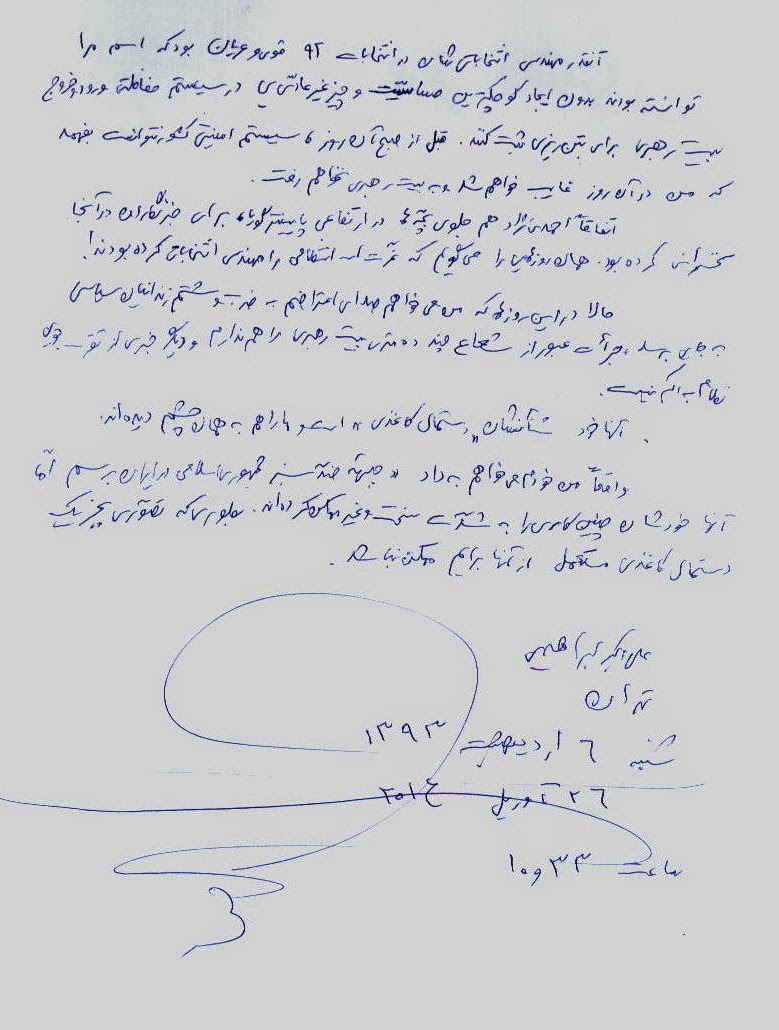 آنقدر مهندسی انتخاباتی شان در انتخابات ۹۲ قوی و عریان بود که اسم مرا
توانسته بودند بدون ایجاد کوچکترین حساسیت و چیز غیرعادّی‌یی در سیستم حفاظتی ورود و خروج
بیت رهبری برای بتن ریزی ثبت کنند. قبل از صبح آن روز، سیستم امنیتی کشور نتوانست بفهمد
که من در آن روز غایب خواهم شد و به بیت رهبری نخواهم رفت.
اتفاقاً احمدی نژاد هم جلوی بچّه ها در ارتفاعی پایینتر برای خبرنگاران در آنجا
سخنرانی کرده بود. همان روزهایی را می‌گویم که را مهندسی انتخاباتی کرده بودند!
حالا در این روزها که من می خواهم صدای اعتراضم به ضرب و شتم زندانیان سیاسی
به جایی برسد، جرأت عبور از شعاع چند ده متری بیت رهبری را هم ندارم و دیگر خبری از
نظام نیست.
آنها خود شأنشان "دستمال کاغذی" است و ما را هم به همان چشم دیده‌اند.
واقعاً من خودم می خواهم به داد "جبههٔ جمهوری اسلامی در ایران برسم امّا
آنها خودشان چنین کاری را به شدّت سخت و غیرممکن کرده‌اند. بطوری که تصوّری بجز یک
دستمال کاغذی مستعمل از آنها برایم ممکن نباشد.
علی اکبر ابراهیمی
تهران
شنبه ۶ اردیبهشت ۱۳۹۳
۲۶ آوریل ۲۰۱۴
ساعت ۱۰ و ۳۳